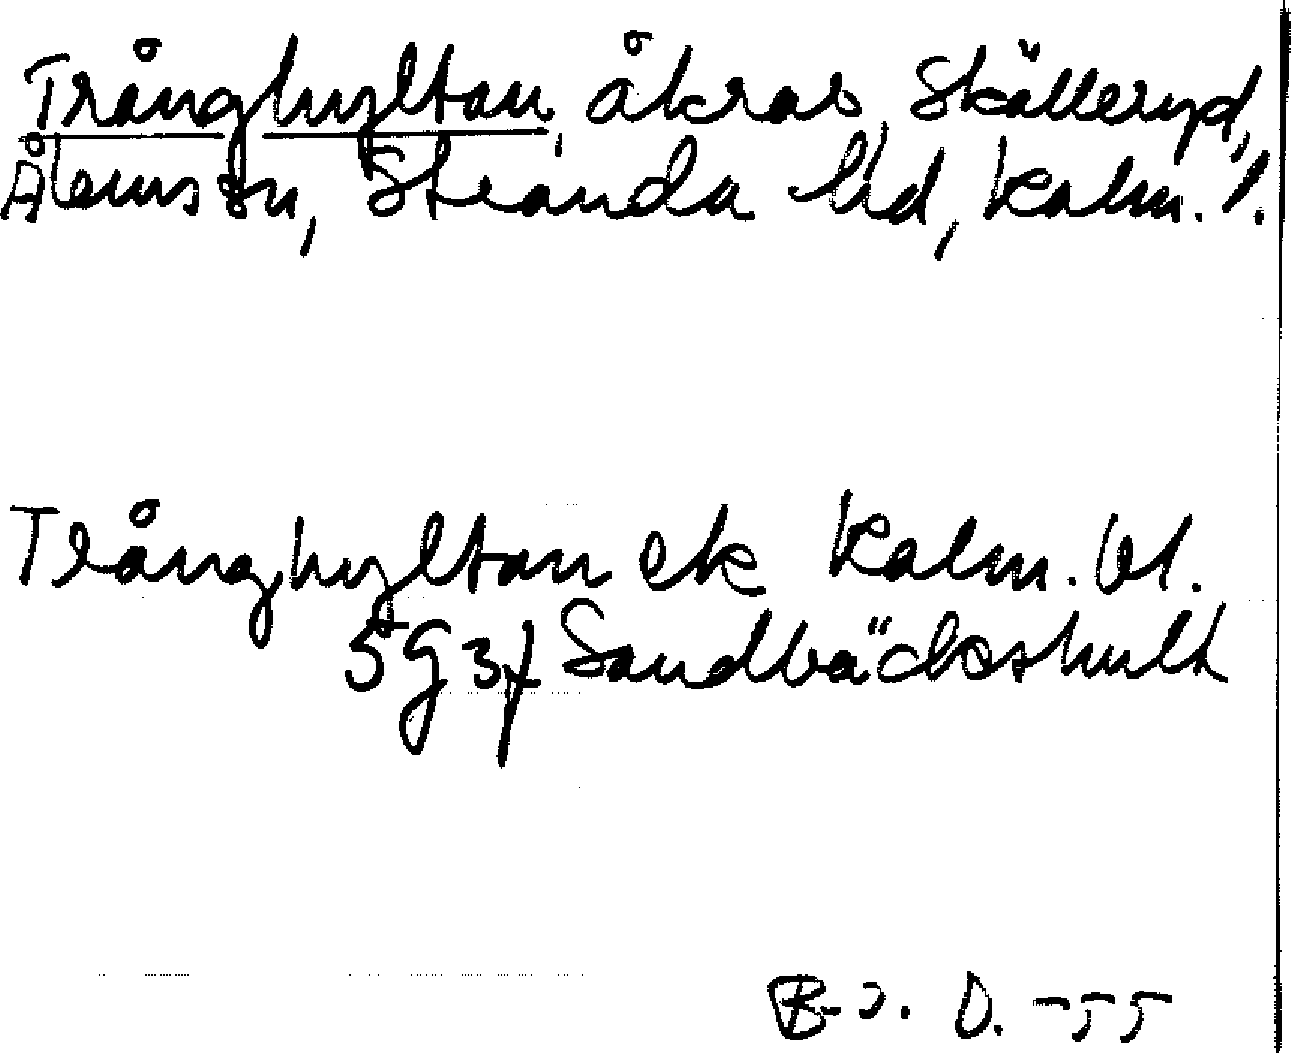 Trånghyltan, åkrar, Skälleryd,
Ålems sn, Stranda hd, Kalm. l.
Trånghyltan ek Kalm. bl.
5G3f Sandbäckshult
B-J. D. -55